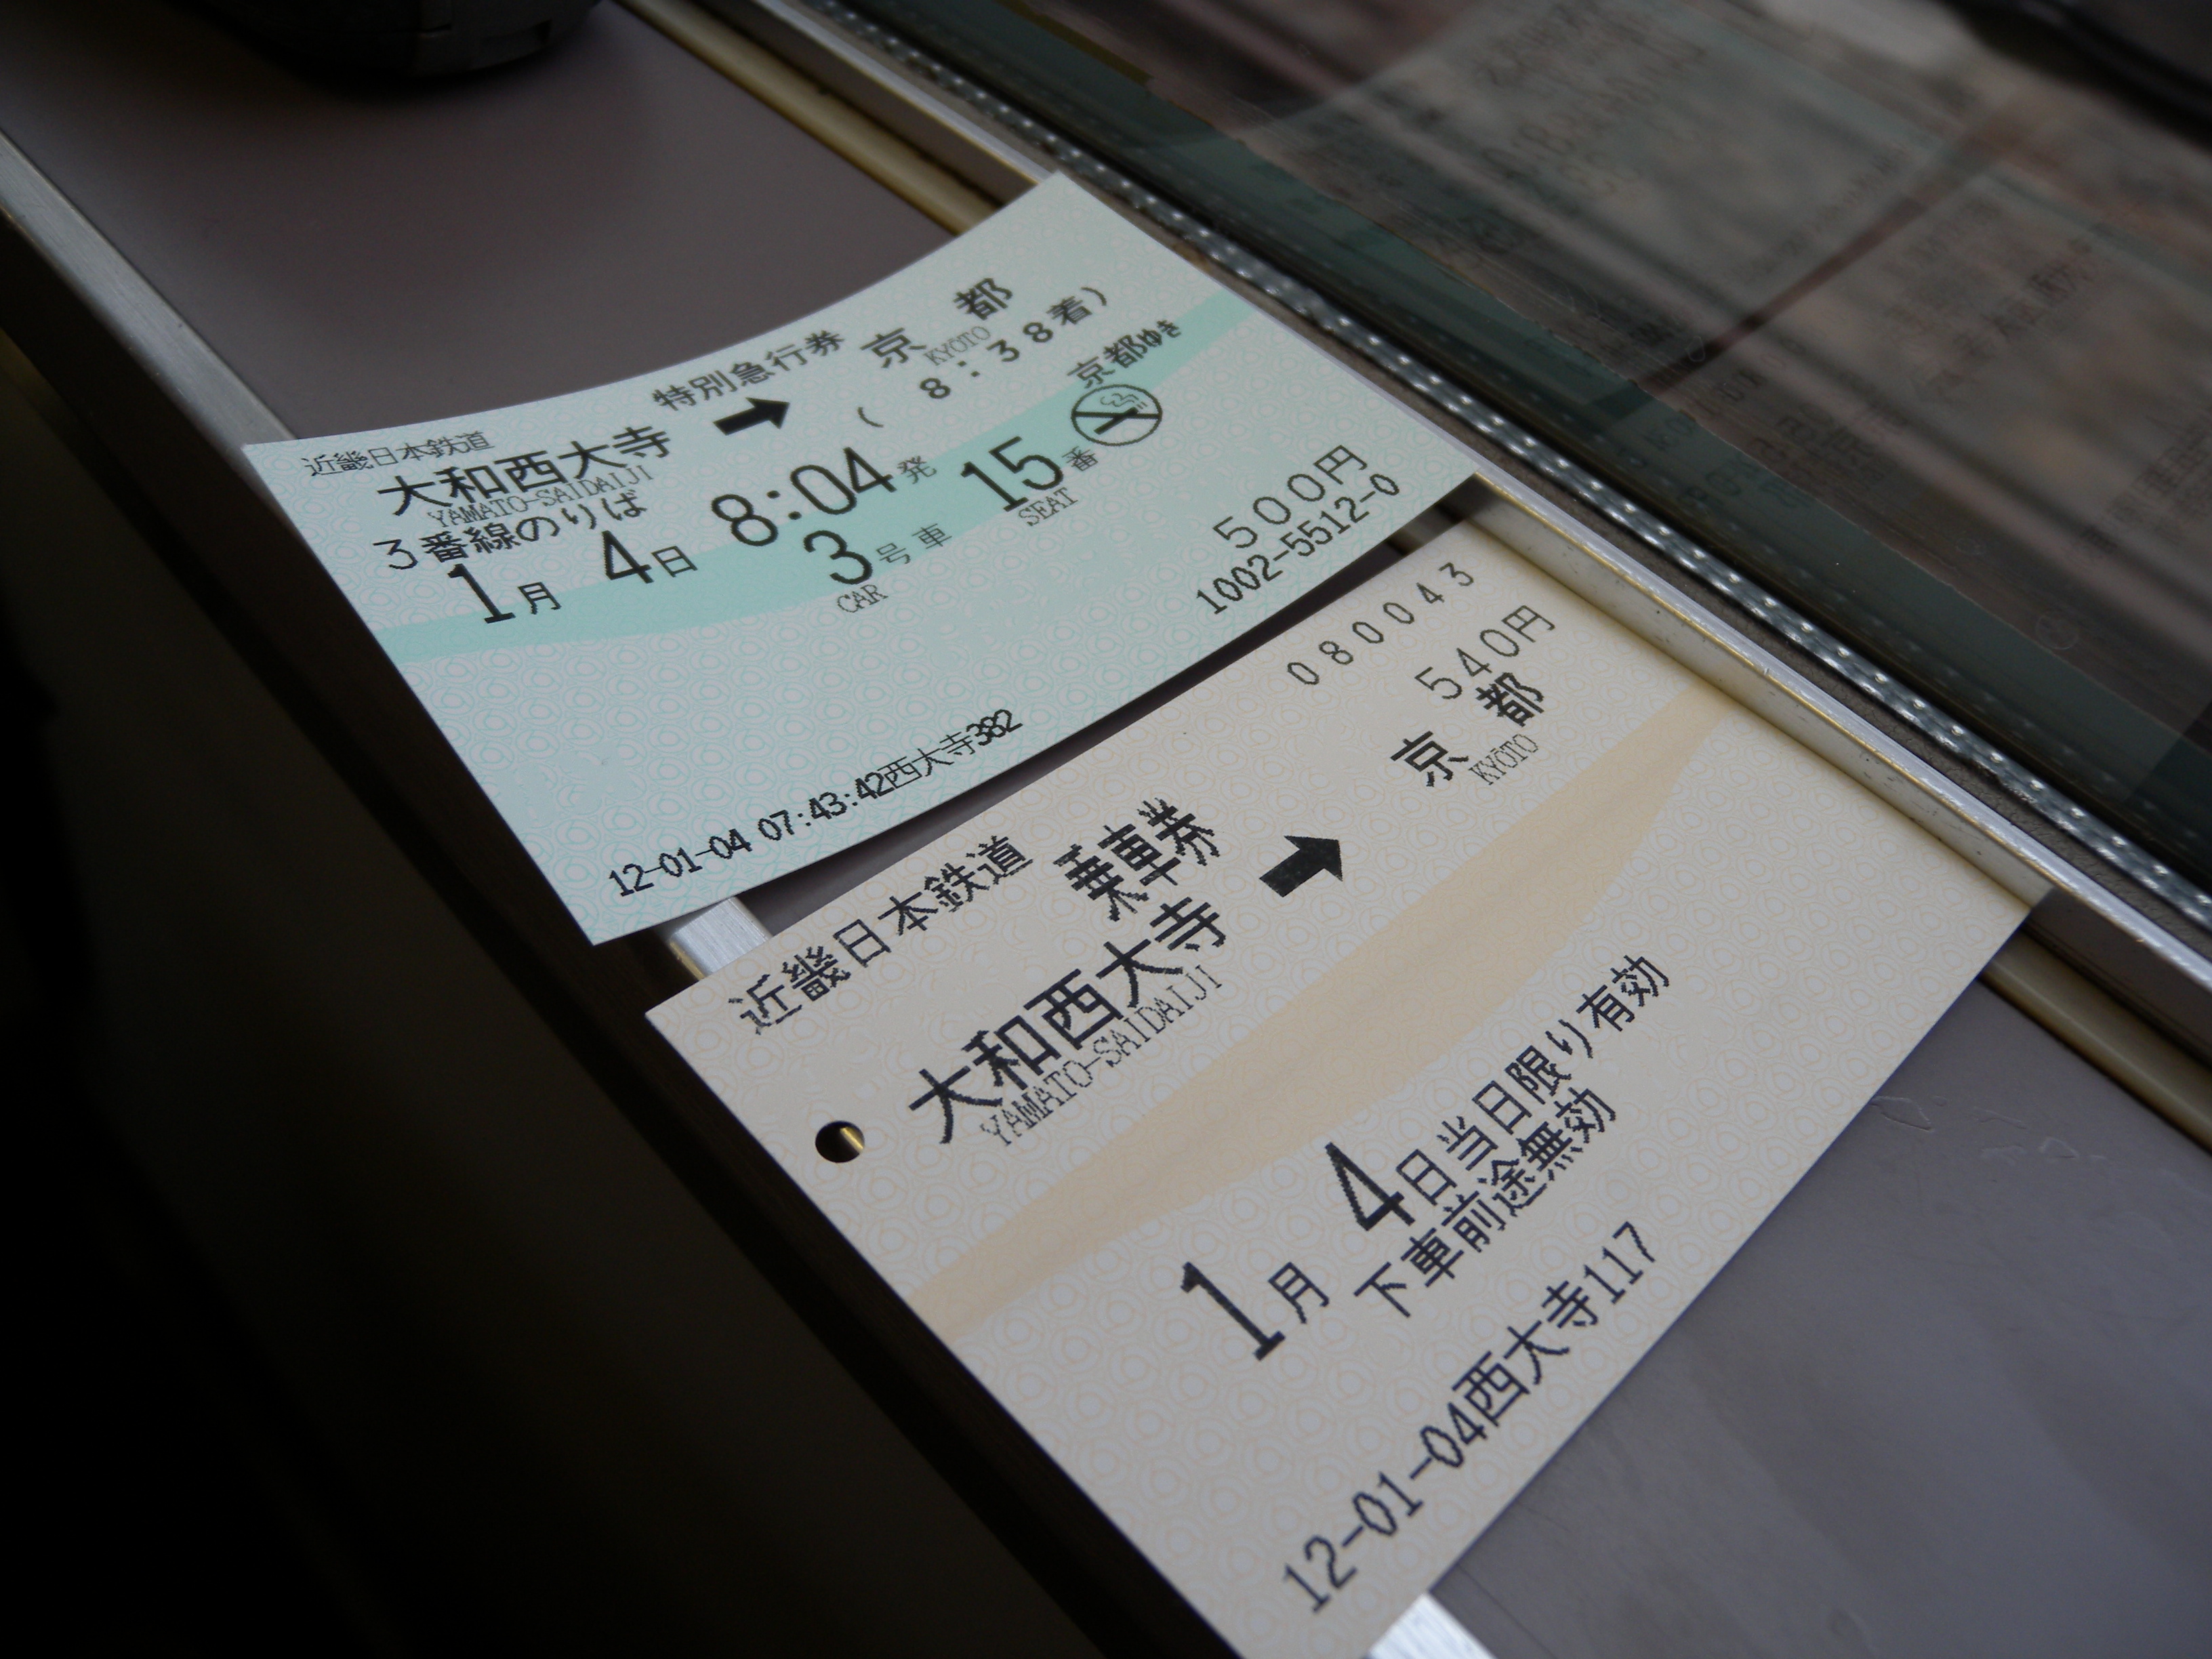 近畿日本鉄道 特別急行券
大和西大寺 ➡ 京都
YAMATO-SAIDAIJI KYŌTO
3番線のりば ( 8:38着)
1月 4日 8:04発 京都ゆき
3号車 15番
CAR SEAT
500円
1002-5512-0
12-01-04 07:43:42西大寺382
080043
近畿日本鉄道 乗車券 540円
大和西大寺 ➡ 京都
YAMATO-SAIDAIJI KYŌTO
1月 4日当日限り有効
下車前途無効
12-01-04西大寺117